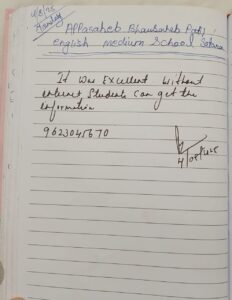 4/8/25
Monday
Appasaheb Bhausaheb Patil
english medium School Satara
It was Excellent Without
internet Students Can get the
information
9623045670
4/08/2025